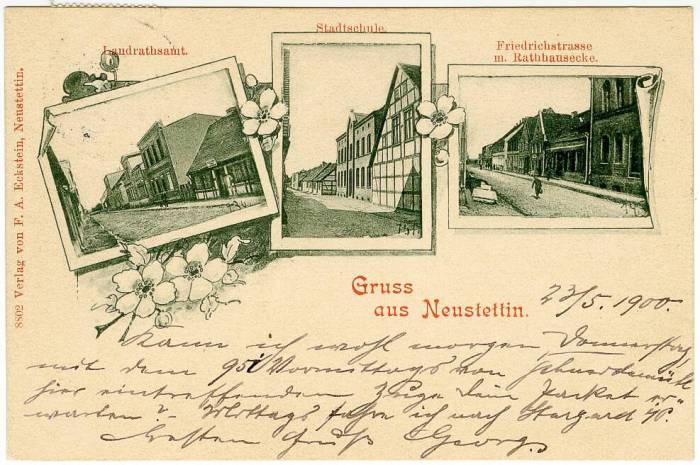 Landrathsamt.
Stadtschule.
Friedrichstrasse
m. Rathhausecke.
8802 Verlag von F. A. Eckstein, Neustettin.
Gruss
aus Neustettin.
23/5. 1900.
Kann ich wohl morgen Donnerstag
mit dem 95 Vormittags von Schneidemühl
hier eintreffenden Zuge Dein Packet er-
warten? - Mittags fahre ich nach Stargard
Besten Gruß Georg.